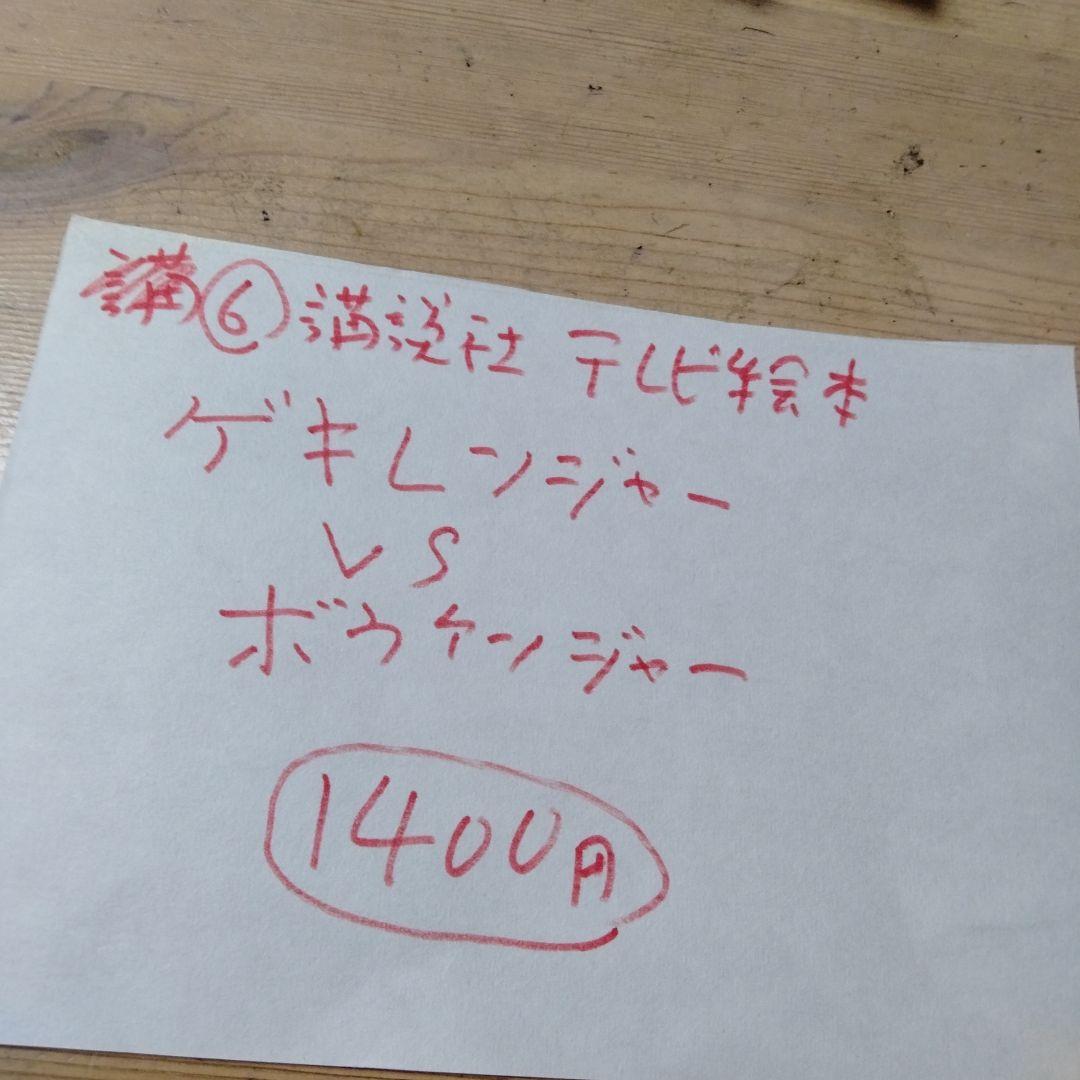 ⑥講談社 テレビ絵本
ゲキレンジャー
VS
ボウケンジャー
1400円